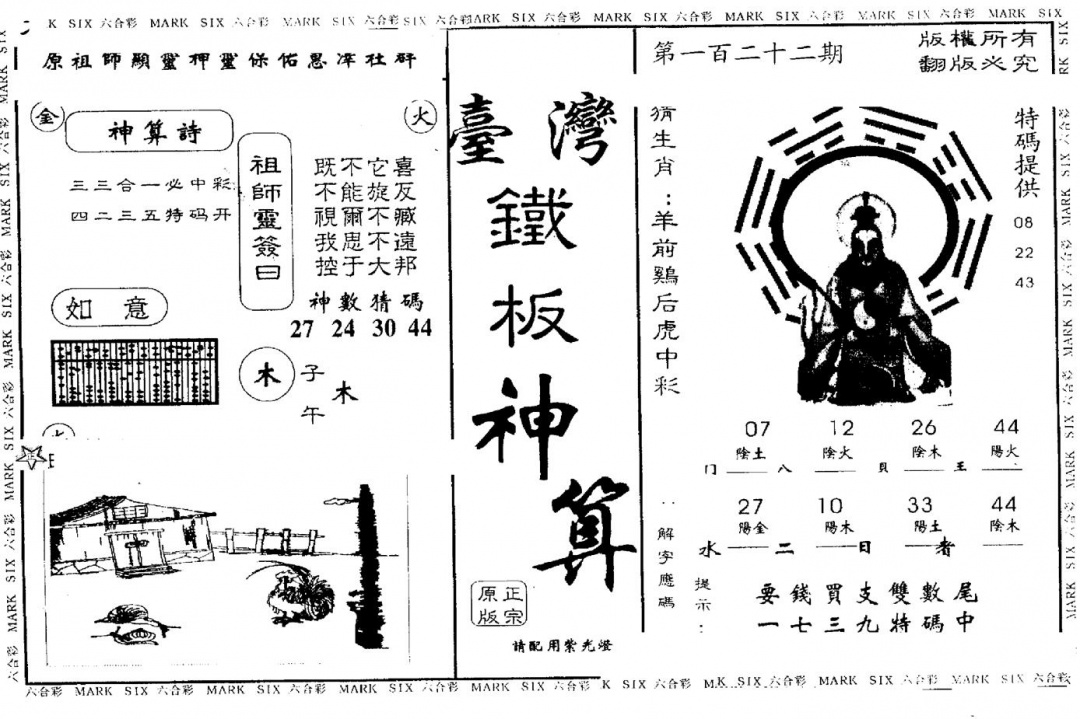 K SIX 六合彩 MARK SIX 六合彩 MARK SIX 六合彩 SIX 六合彩 ARK SIX 六合彩 MARK SIX 六合彩 MARK SIX 六合彩 MARK SIX 六合彩 MARK SIX
原祖師顯靈押靈保佑恩澤社群
金
火
神算詩
三三合一必中彩
四二三五特码开
祖師靈簽曰
既不它喜
不能旋反
視爾不臧
我思不遠
控于大邦
神數猜碼
27 24 30 44
如意
木
子
木
午
臺灣鐵板神算
正宗
原版
請配用紫光燈
第一百二十二期
版權所有
翻版必究
猜生肖:羊前鷄后虎中彩
特碼提供
08
22
43
07 12 26 44
陰土 陰火 陰木 陽火
八 貝 王
27 10 33 44
陽金 陽木 陽土 陰木
水 二 日 者
解字應碼
提示:
要錢買支雙數尾
一七三九特碼中
六合彩 MARK SIX 六合彩 MARK SIX 六合彩 MARK SIX 六合彩 MARK SIX 六合彩 K SIX 六合彩 MARK SIX 六合彩 MARK SIX 六合彩